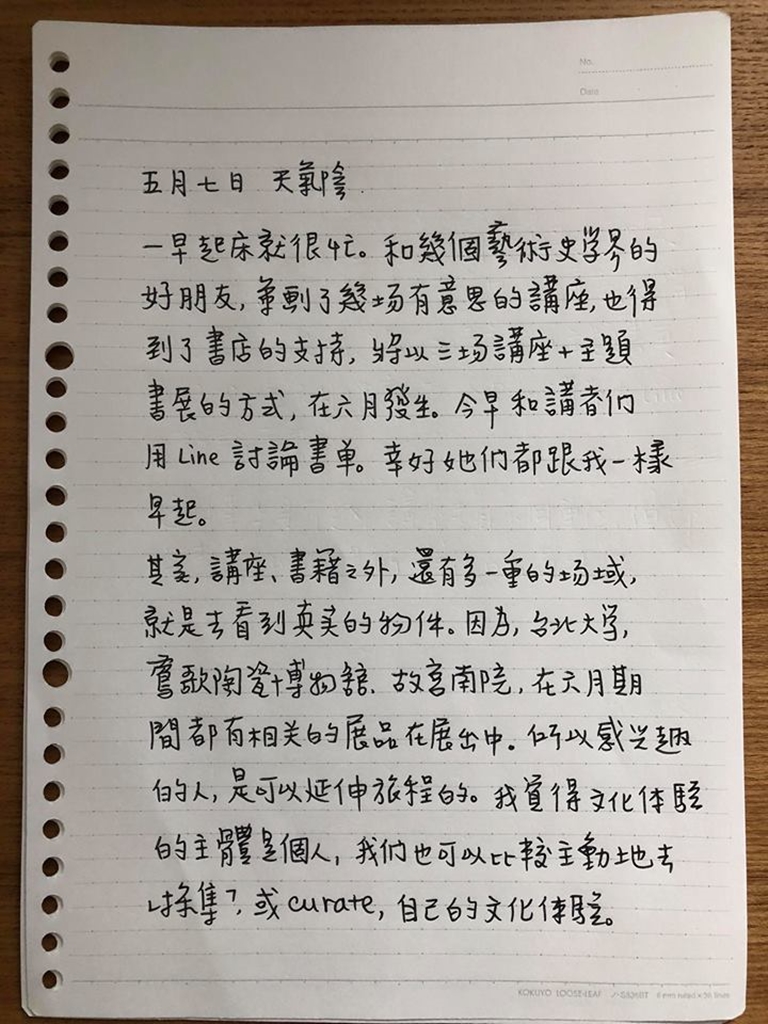 No.
Date
五月七日 天氣陰.
一早起床就很忙。和幾個藝術史学界的
好朋友,策劃了幾场有意思的講座,也得
到了書店的支持,將以三场講座+主題
書展的方式,在六月發生。今早和講者们
用Line討論書单。幸好她们都跟我一樣
早起。
其实,講座、書籍之外,還有多一重的场域,
就是去看到真实的物件。因为,台北大学,
鶯歌陶瓷博物館、故宮南院,在六月期
間都有相关的展品在展出中。所以感兴趣
的人,是可以延伸旅程的。我覚得文化体驗
的主體是個人,我们也可以比較主動地去
「採集」,或curate,自己的文化体驗。
KOKUYO LOOSE-LEAF ノ-S836BT 6 mm ruled × 36 lines